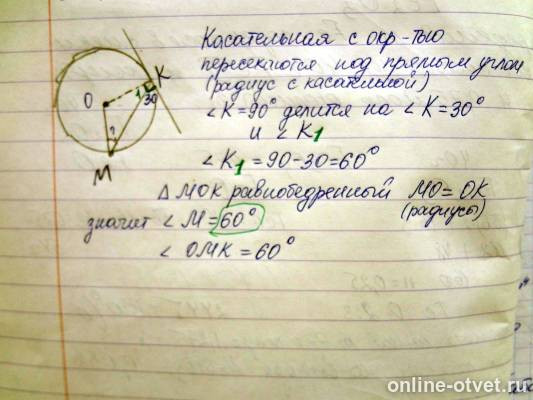 Касательная с окр-тью
пересекаются под прямым углом
(радиус с касательной)
∠K=90° делится на ∠K=30°
и ∠K1
∠K1=90-30=60°
Δ МОК равнобедренный МО=ОК
(радиусы)
значит ∠М=60°
∠ ОМК=60°
О
К
1
30
?
М
online-otvet.ru